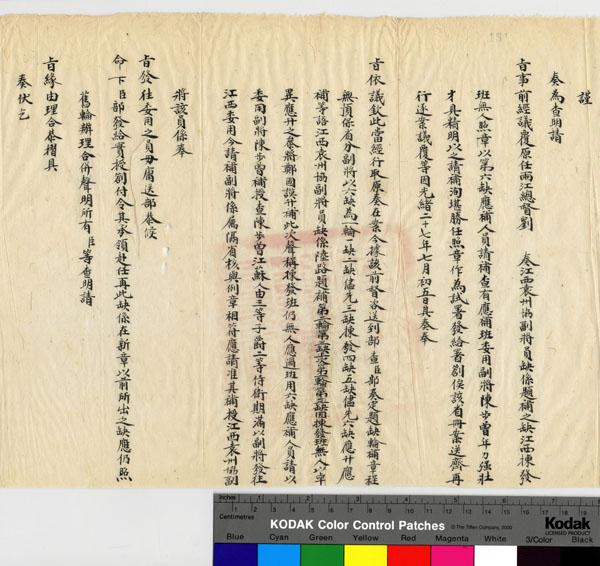 謹
奏為查明請
旨事前經議覆原任兩江總督劉 奏江西袁州協副將員缺係題補之缺江西揀發
班無人照章以第六缺應補人員請補查有應補班委用副將陳步曾年力强壯
才具精明以之請補洵堪勝任照章作為試署發給署劄俟該省冊案送齊再
行逐案議覆等因光緒二十七年七月初五日具奏奉
旨依議欽此當經行取原奏在案今據該前督咨送到部查臣部奏定題缺輪補章程
無項係省分副將以六缺為一輪一缺二缺儘先三缺揀發四缺五缺儘先六缺應升應
補等語江西袁州協副將員缺係陸路題補第三輪第三缺次第三輪第三缺因揀發班無人以卓
異應升之蔡將鄭國謨升補此次聲稱揀發班仍無人應過班用六缺應補人員請以
委用副將陳步曾補授查陳步曾江蘇人由三等子爵二等侍衛期滿以副將發往
江西委用今請補副將係屬隔省核與例章相符應請准其補授江西袁州協副
將該員係奉
旨發往委用之員毋庸送部恭候
命下臣部發給實授劄付令其承領赴任再此缺係在新章以前所出之缺應仍照
舊輪辦理合併聲明所有臣等查明請
旨緣由理合恭摺具
奏伏乞
Inches
Centimetres
KODAK Color Control Patches
© The Tiffen Company, 2000
Kodak
LICENSED PRODUCT
Blue Cyan Green Yellow Red Magenta White 3/Color Black